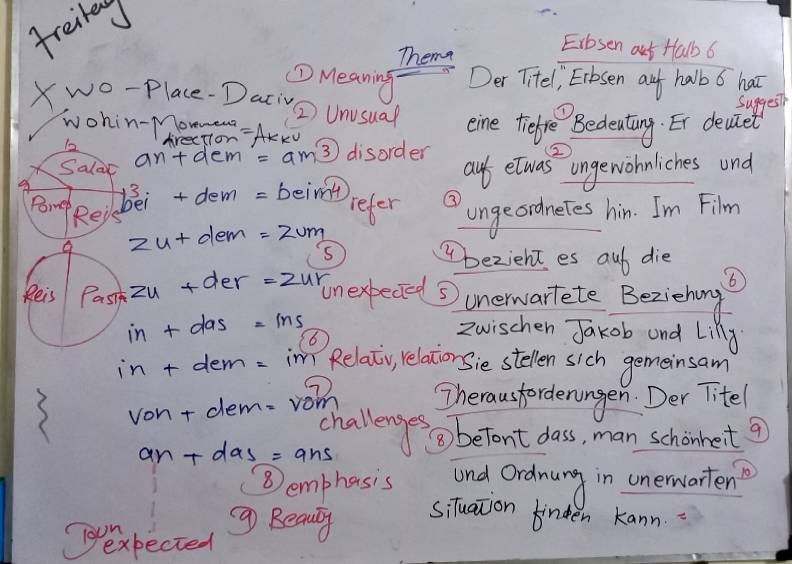 freitag
X WO - Place - Dativ
✓ wohin - Movement
direction = AKKU
an + dem = am
bei + dem = beim
zu + dem = zum
zu + der = zur
in + das = ins
in + dem = im
von + dem = vom
an + das = ans
12
Salat
9
3
Reis
Reis
Pasta
① Meaning
② Unusual
③ disorder
④ refer
⑤
unexpected
⑥
Relativ, relation
⑦
challenges
⑧ emphasis
⑨ Beauty
⑩ un
expected
Thema
Erbsen auf Halb 6
Der Titel, "Erbsen auf halb 6" hat
suggest
eine tiefre ① Bedeutung. Er deutet
auf etwas ② ungewöhnliches und
③ ungeordnetes hin. Im Film
④ bezieht es auf die
⑤ unerwartete Beziehung ⑥
zwischen Jakob und Lilly.
Sie stellen sich gemeinsam
⑦ herausforderungen. Der Titel
⑧ betont dass, man schönheit ⑨
und Ordnung in unerwarten ⑩
situation finden kann.